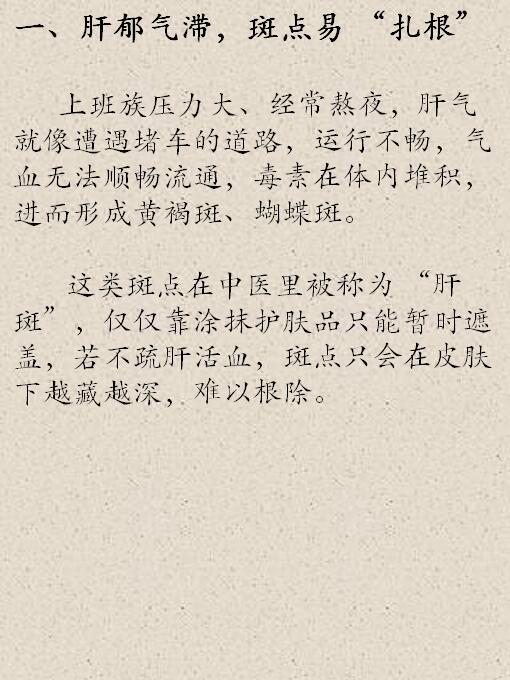 一、肝郁气滞，斑点易“扎根”
上班族压力大、经常熬夜，肝气
就像遭遇堵车的道路，运行不畅，气
血无法顺畅流通，毒素在体内堆积，
进而形成黄褐斑、蝴蝶斑。
这类斑点在中医里被称为“肝
斑”，仅仅靠涂抹护肤品只能暂时遮
盖，若不疏肝活血，斑点只会在皮肤
下越藏越深，难以根除。